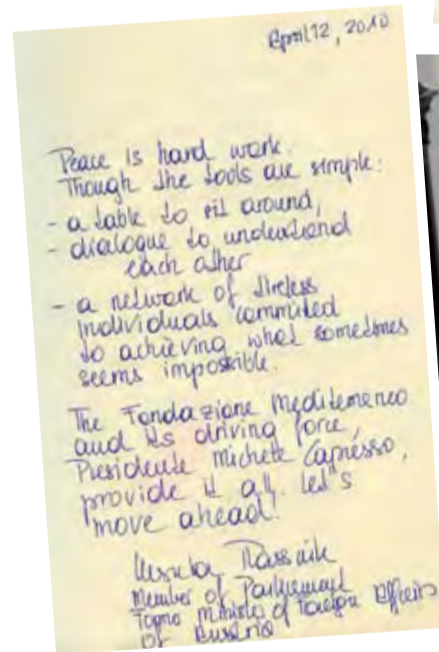 April 12, 2010
Peace is hard work.
Though the tools are simple:
- a table to sit around,
- dialogue to understand
each other
- a network of tireless
individuals commited
to achieving what sometimes
seems impossible.
The Fondazione Mediterraneo
and its driving force,
Presidente Michele Capasso,
provide it all. Let's
move ahead!
Ursula Plassnik
Member of Parliament
Former Minister of Foreign Affairs
of Austria